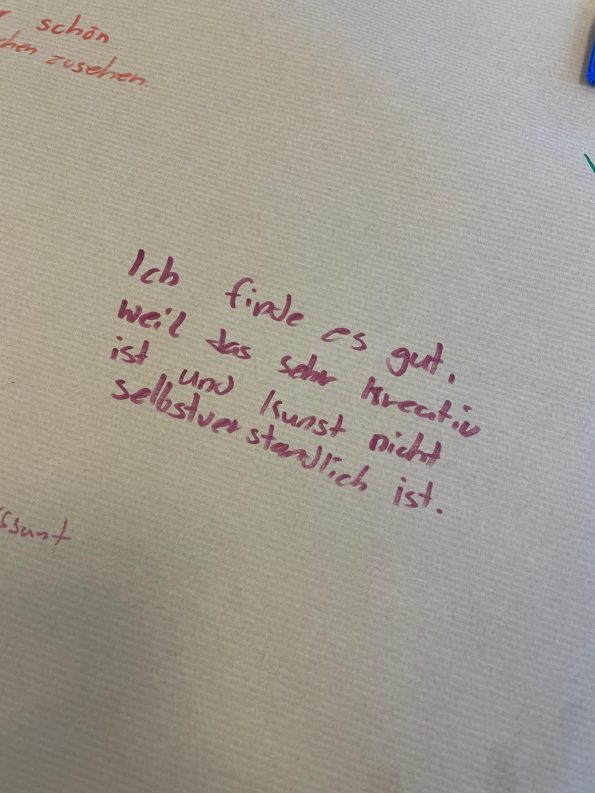 schön
zusehen
Ich finde es gut,
weil das sehr kreativ
ist und kunst nicht
selbstverstandlich ist.